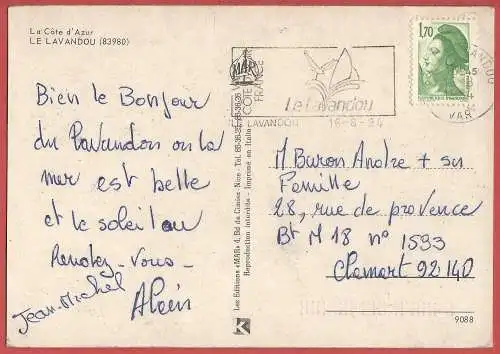 La Côte d'Azur
LE LAVANDOU (83980)
Bien le Bonjour
du Lavandou ou la
mer est belle
et le soleil au
Rendez-Vous-
Jean-Michel
Alain
MAR
CÔTE
FRANCE
Le Lavandou
LAVANDOU 16-8-84
1,70
VAR
Les Editions «MAR» 4, Bd du Cimiez - Nice - Tél. 
Reproduction interdite - Imprimé en Italie
K
M Baron Andre + son
Famille
28, rue de provence
Bt M 18 n° 1593
Clamart 92140
9088